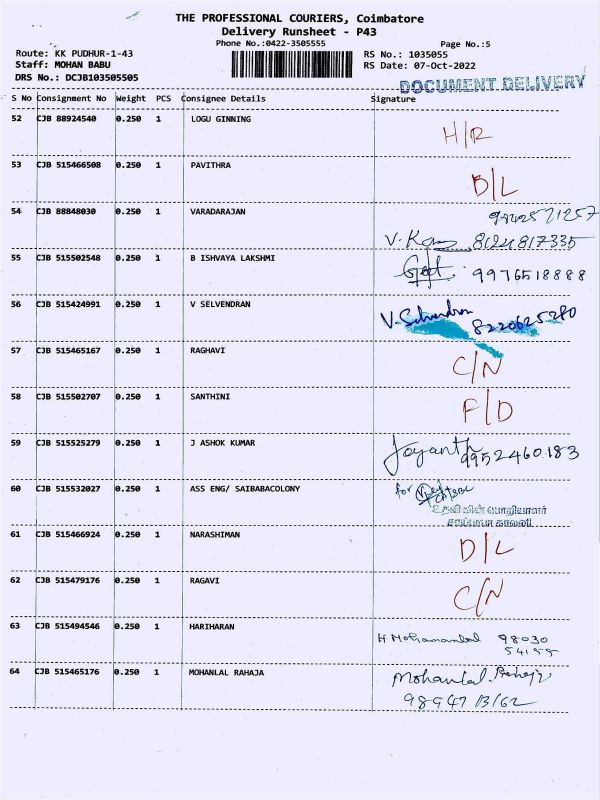 THE PROFESSIONAL COURIERS, Coimbatore
Delivery Runsheet - P43
Phone No.:0422-3505555 Page No.:5
Route: KK PUDHUR-1-43 RS No.: 1035055
Staff: MOHAN BABU RS Date: 07-Oct-2022
DRS No.: DCJB103505505
DOCUMENT DELIVERY
S No Consignment No Weight PCS Consignee Details Signature
52 CJB 88924540 0.250 1 LOGU GINNING H/R
53 CJB 515466508 0.250 1 PAVITHRA D/L
54 CJB 88848030 0.250 1 VARADARAJAN
V. 8124817335
55 CJB 515502548 0.250 1 B ISHVAYA LAKSHMI 9976518888
56 CJB 515424991 0.250 1 V SELVENDRAN V. Selvendran 8220625280
57 CJB 515465167 0.250 1 RAGHAVI C/N
58 CJB 515502707 0.250 1 SANTHINI F/D
59 CJB 515525279 0.250 1 J ASHOK KUMAR Jayanth 9952460183
60 CJB 515532027 0.250 1 ASS ENG/ SAIBABACOLONY for
உதவி மின் பொறியாளர்
சாய்பாபா காலனி
61 CJB 515466924 0.250 1 NARASHIMAN D/L
62 CJB 515479176 0.250 1 RAGAVI C/N
63 CJB 515494546 0.250 1 HARIHARAN H 98030
64 CJB 515465176 0.250 1 MOHANLAL RAHAJA Mohanlal